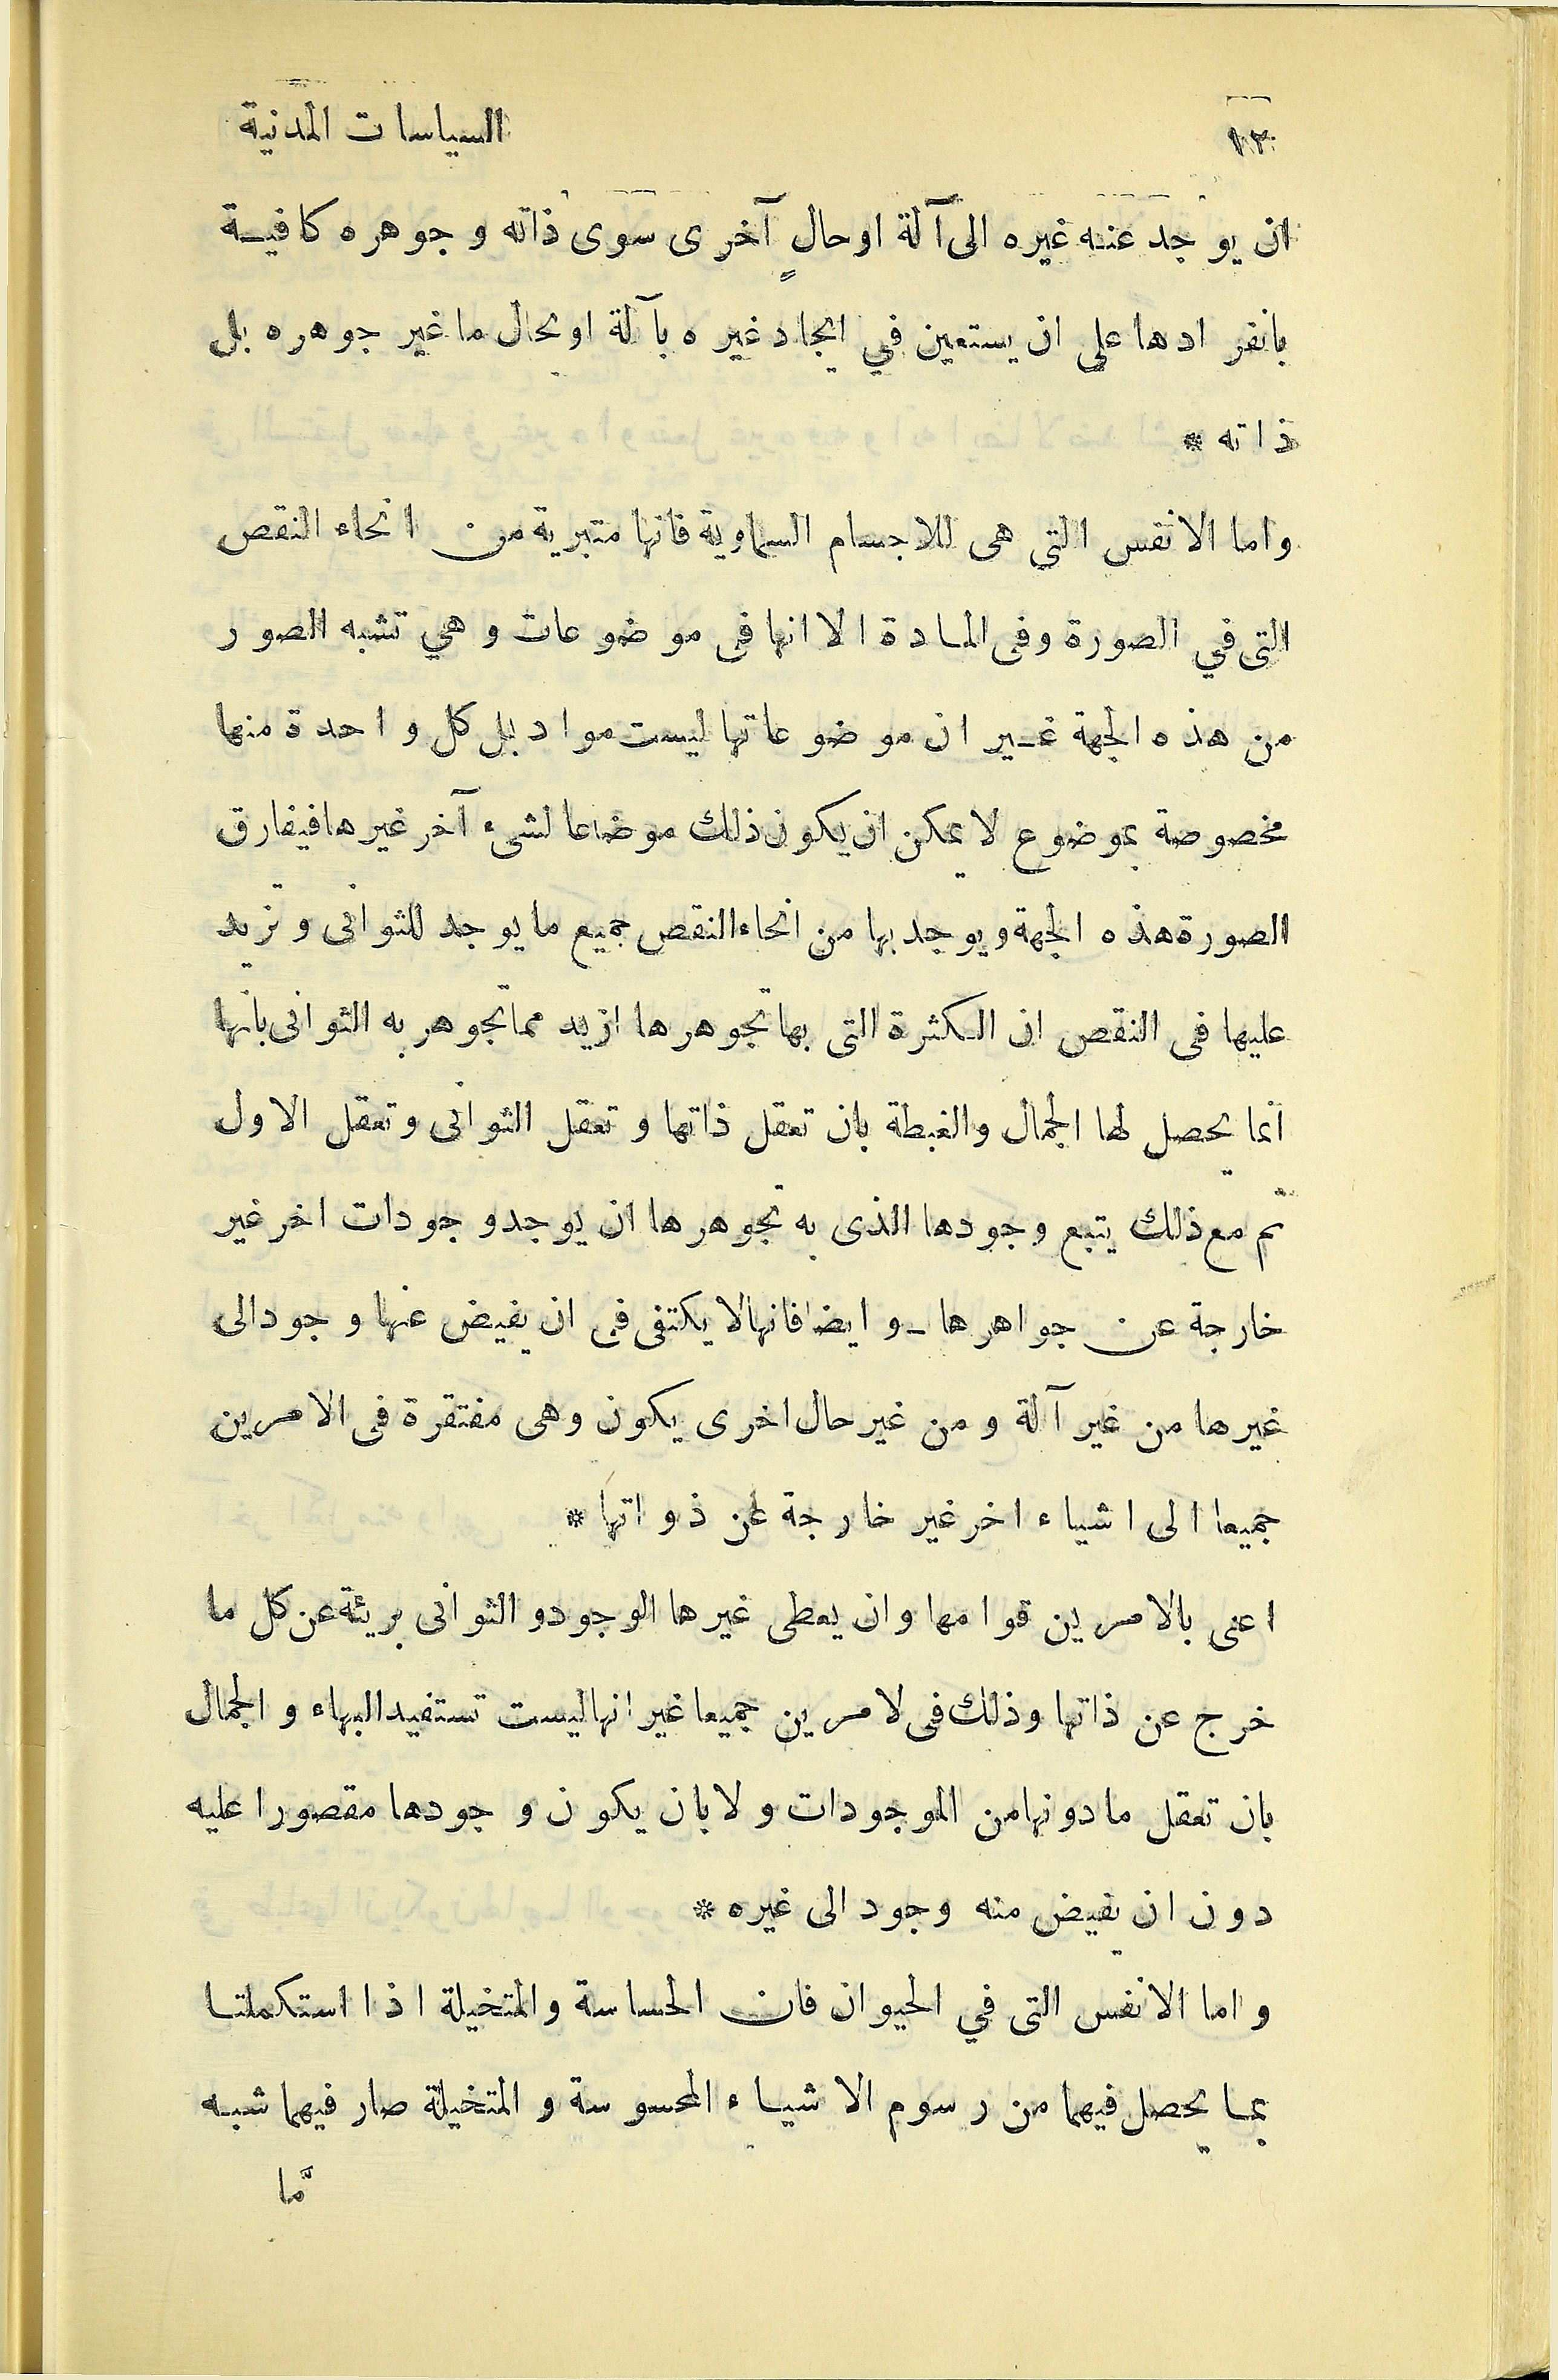 ١٢ السياسات المدنية
ان يوجد عنه غيره الى آلة او حالٍ آخرى سوى ذاته وجوهره كافية
بانفرادها على ان يستعين في ايجاد غيره بآلة او بحال ما غير جوهره بل
ذاته *
واما الانفس التي هى للاجسام السماوية فانها متبرية من انحاء النقص
التى في الصورة وفى المادة الا انها فى موضوعات وهي تشبه الصور
من هذه الجهة غير ان موضوعاتها ليست مواد بل كل واحدة منها
مخصوصة بموضوع لا يمكن ان يكون ذلك موضاعا لشىء آخر غيرها فيفارق
الصورة هذه الجهة ويوجد بها من انحاء النقص جميع ما يوجد للثوانى وتزيد
عليها فى النقص ان الكثرة التى بها تجوهرها ازيد مما تجوهر به الثوانى بانها
انما يحصل لها الجمال والغبطة بان تعقل ذاتها وتعقل الثوانى وتعقل الاول
ثم مع ذلك يتبع وجودها الذى به تجوهرها ان يوجد وجودات اخر غير
خارجة عن جواهرها ـ وايضا فانها لا يكتفى فى ان يفيض عنها وجود الى
غيرها من غير آلة ومن غير حال اخرى يكون وهى مفتقرة فى الامرين
جميعا الى اشياء اخر غير خارجة عن ذواتها *
اعنى بالامرين قوامها وان يعطى غيرها الوجود و الثوانى بريئة عن كل ما
خرج عن ذاتها وذلك فى لامرين جميعا غير انها ليست تستفيد البهاء والجمال
بان تعقل ما دونها من الموجودات ولا بان يكون وجودها مقصورا عليه
دون ان يفيض منه وجود الى غيره *
واما الانفس التى في الحيوان فان الحساسة والمتخيلة اذا استكملتا
بما يحصل فيهما من رسوم الاشياء المحسوسة والمتخيلة صار فيهما شبه
مَّا